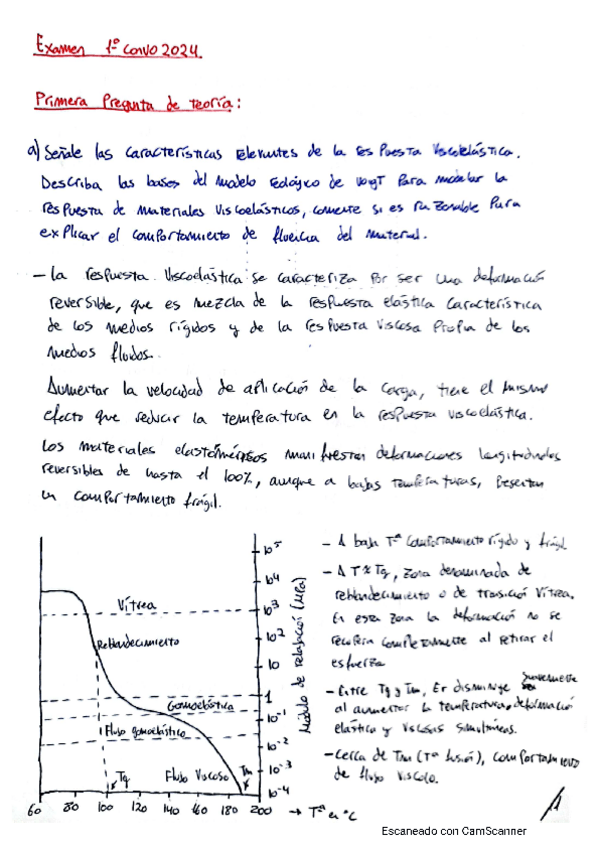 Examen 1º convo 2024.
Primera Pregunta de teoría:
a) Señale las características relevantes de la respuesta viscoelástica.
Describa las bases del modelo reológico de Voigt para modelar la
respuesta de materiales viscoelásticos, comente si es razonable para
explicar el comportamiento de fluencia del material.
- La respuesta viscoelástica se caracteriza por ser una deformación
reversible, que es mezcla de la respuesta elástica característica
de los medios rígidos y de la respuesta viscosa propia de los
medios fluidos.
Aumentar la velocidad de aplicación de la carga, tiene el mismo
efecto que reducir la temperatura en la respuesta viscoelástica.
Los materiales elastoméricos manifiestan deformaciones longitudinales
reversibles de hasta el 100%, aunque a bajas temperaturas, presentan
un comportamiento frágil.
10⁵
10⁴
10³
10²
10
1
10⁻¹
10⁻²
10⁻³
10⁻⁴
Módulo de relajación (MPa)
Vítrea
Reblandecimiento
Gomoelástica
Flujo gomoelástico
Flujo Viscoso
Tg
Tm
60 80 100 120 140 160 180 200 → Tª en ºC
- A baja Tª comportamiento rígido y frágil.
- A T≈Tg, zona denominada de
reblandecimiento o de transición vítrea.
En esta zona la deformación no se
recupera completamente al retirar el
esfuerzo
- Entre Tg y Tm, Er disminuye suavemente
al aumentar la temperatura, deformación
elástica y viscosas simultáneas.
- Cerca de Tm (Tª fusión), comportamiento
de flujo viscoso.
1
Escaneado con CamScanner